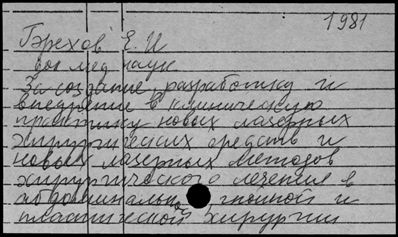 1981
Брехов Е. И
док мед наук
За создание, разработку и
внедрение в клиническую
практику новых лазерных
хирургических средств и
новых лазерных методов
хирургического лечения в
абдоминальной, гнойной и
пластической хирургии